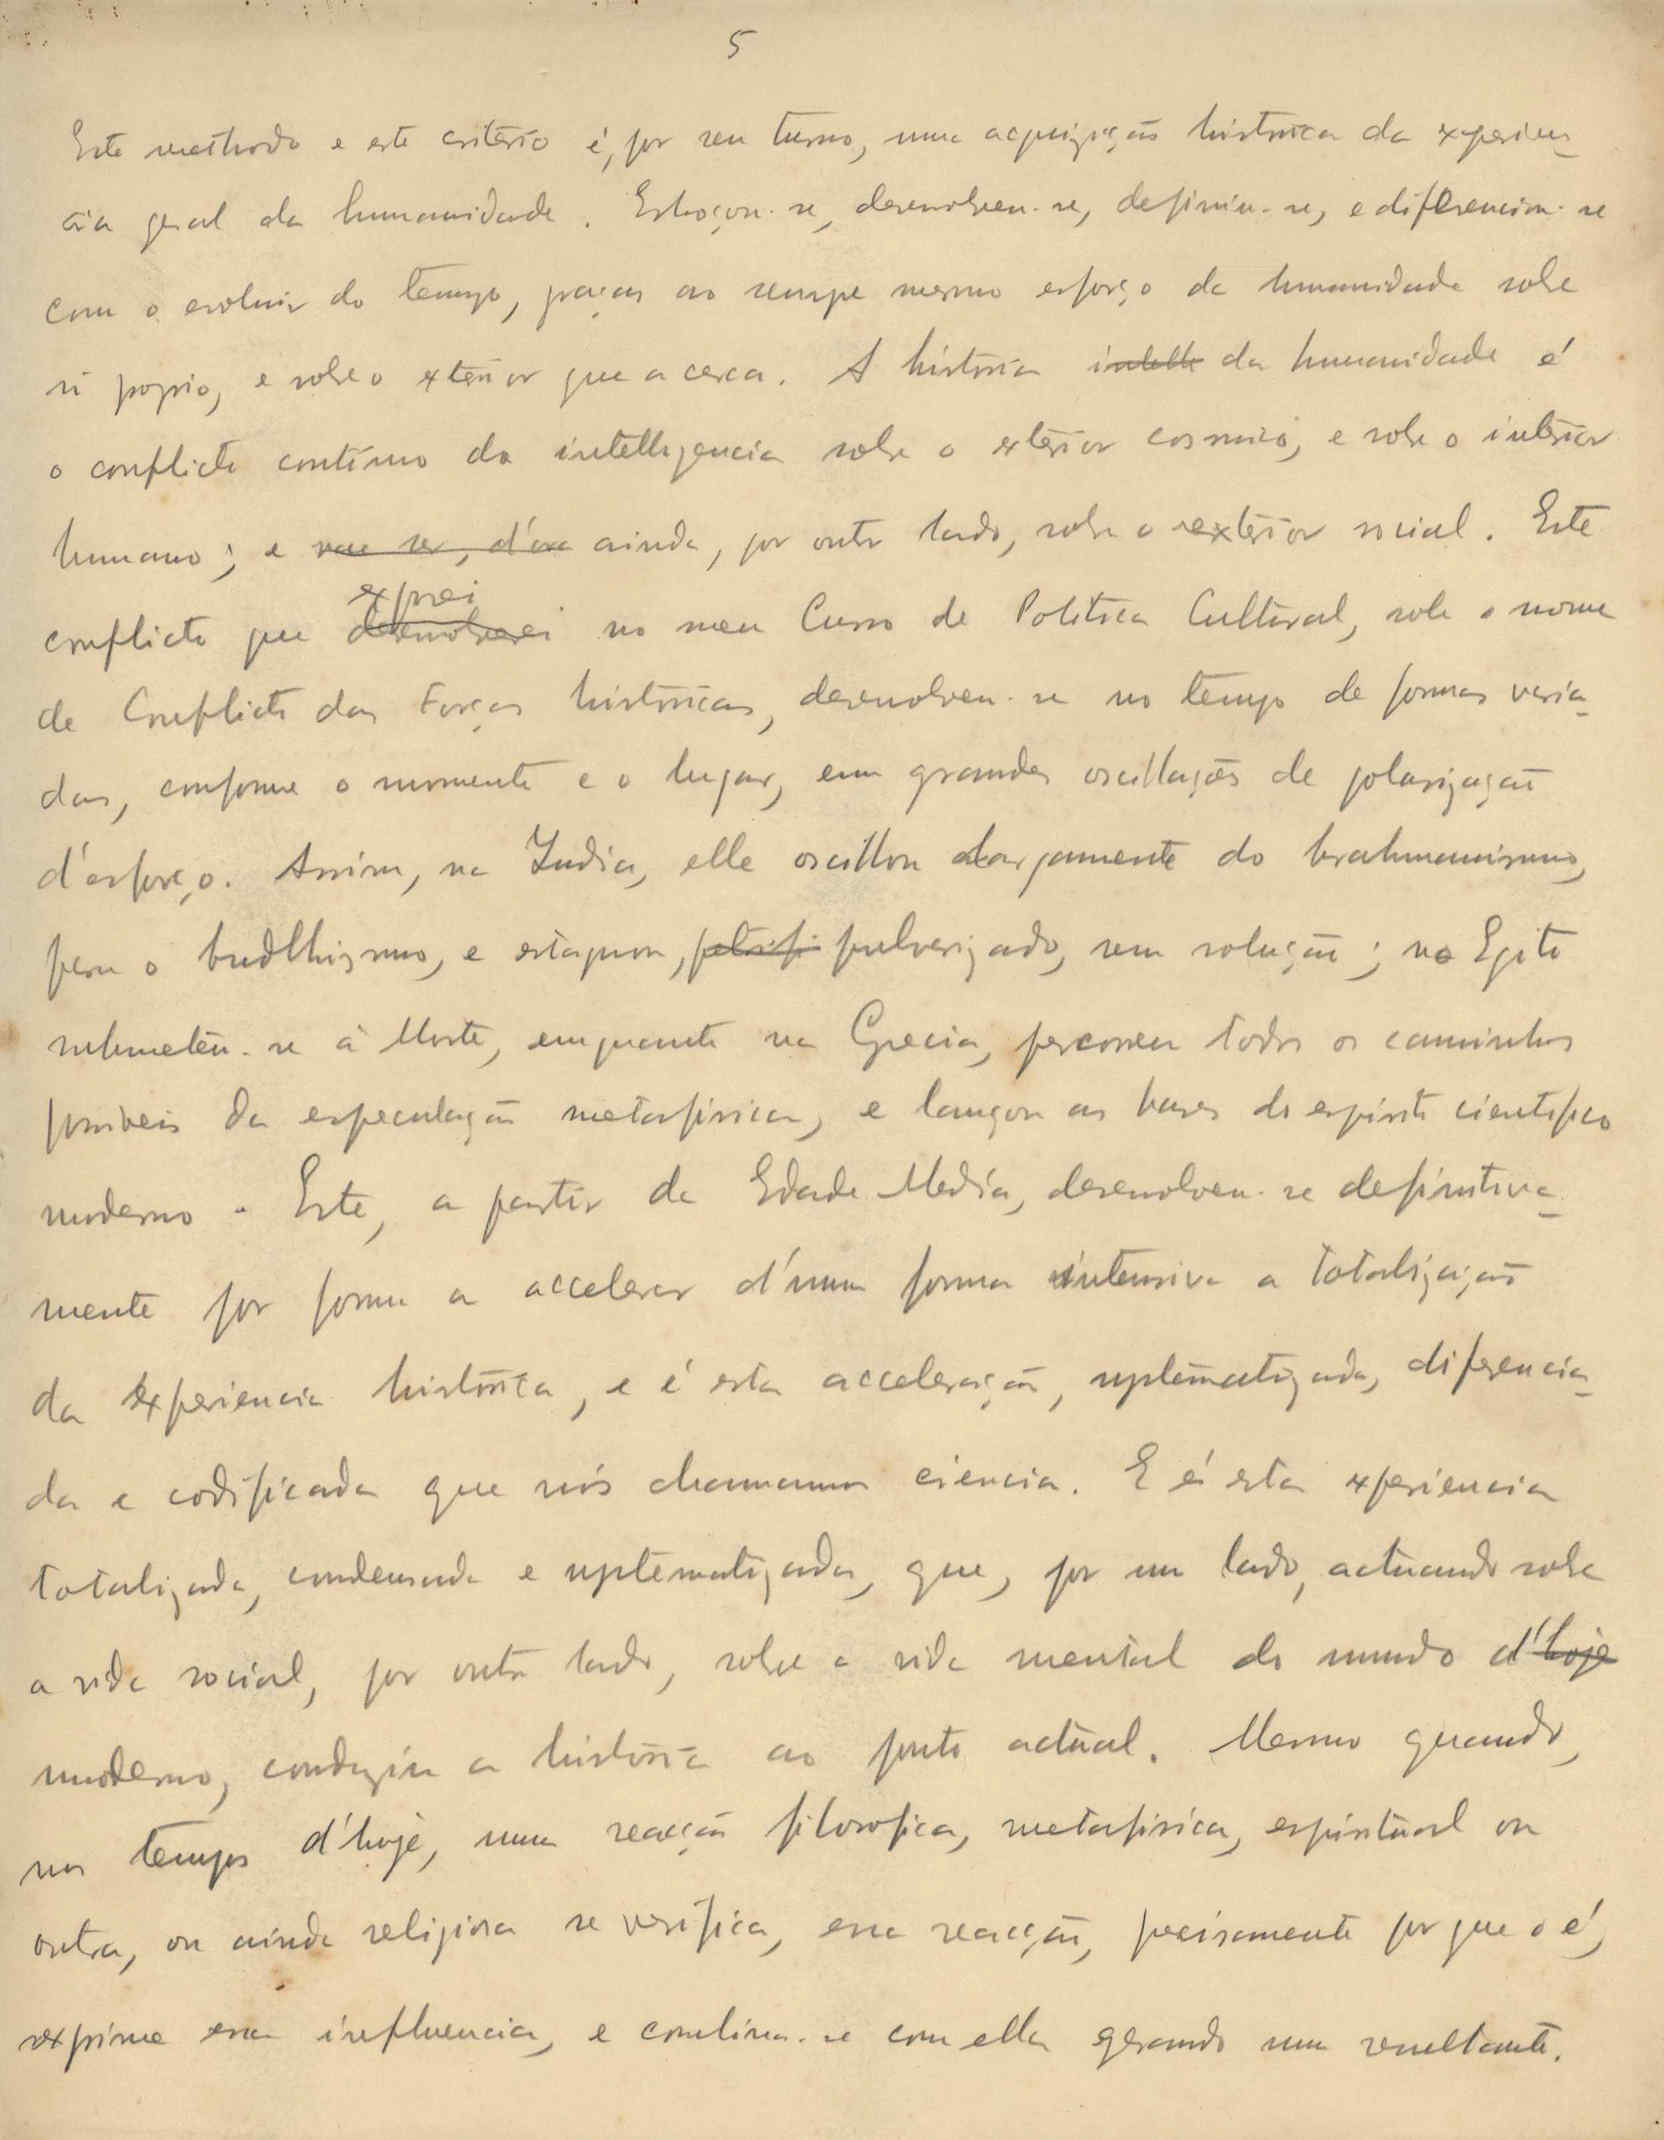 5
Este methodo e este critério é, por seu turno, uma acquizição historica da experien_
cia geral da humanidade. Esboçou-se, desenvolveu-se, definiu-se, e diferenciou-se
com o evoluir do tempo, graças ao sempre mesmo esforço da humanidade sobre
si propio, e sobre o exterior que a cerca. A historia intelle da humanidade é
o conflicto continuo da intelligencia sobre o exterior cosmico, e sobre o interior
humano; e ainda, por outro lado, sobre o exterior social. Este
exporei
conflicto que desenvolverei no meu Curso de Politica Cultural, sob o nome
de Conflicto das Forças historicas, desenvolveu-se no tempo de formas varia_
das, conforme o momento e o lugar, em grandes oscillações de polarização
d'esforço. Assim, na India, elle oscillou largamente do brahmanismo,
para o budhismo, e estagnou, petrifi pulverizado, sem solução; no Egito
submeteu-se á Morte, emquanto na Grecia, percorreu todos os caminhos
possiveis da especulação metafisica, e lançou as bases do espirito cientifico
moderno. Este, a partir da Edade Media, desenvolveu-se definitiva_
mente por forma a accelerar d'uma forma intensiva a totalização
da experiencia historica, e é esta acceleração, systematizada, diferencia_
da e codificada que nós chamamos ciencia. E é esta experiencia
totalizada, condensada e systematizada, que, por um lado, actuando sobre
a vida social, por outro lado, sobre a vida mental do mundo d'hoje
moderno, conduziu a historia ao ponto actual. Mesmo quando,
nos tempos d'hoje, uma reacção filosofica, metafisica, espiritual ou
outra, ou ainda religiosa se verifica, essa reacção, precisamente por que o é,
exprime essa influencia, e combina-se com ella gerando uma resultante.